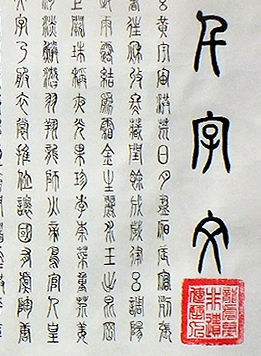 千字文
玄黃宇宙洪荒日月盈昃辰宿列張
暑往秋收冬藏閏餘成歲律呂調陽
致雨露結為霜金生麗水玉出崑岡
巨闕珠稱夜光果珍李柰菜重芥薑
河淡鱗潛羽翔龍師火帝鳥官人皇
文字乃服衣裳推位讓國有虞陶唐